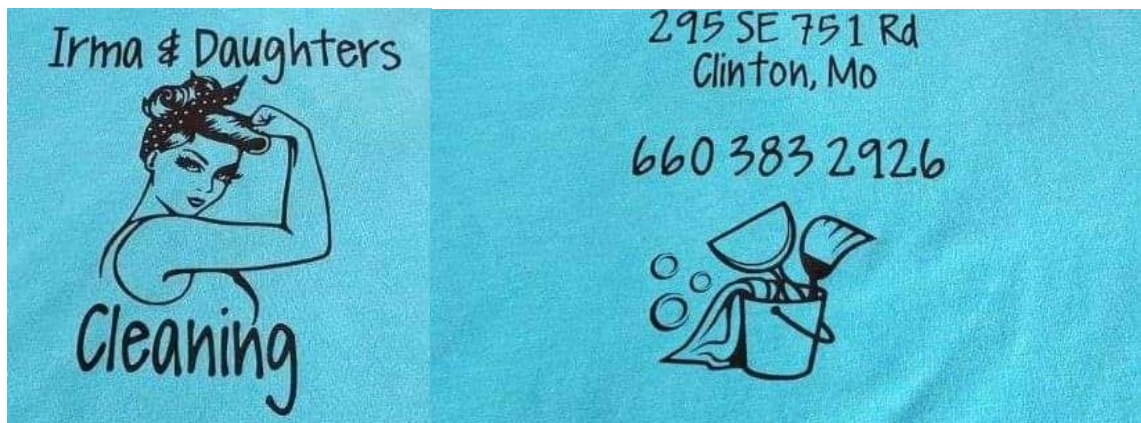 Irma & Daughters
Cleaning
295 SE 751 Rd
Clinton, Mo
660 383 2926